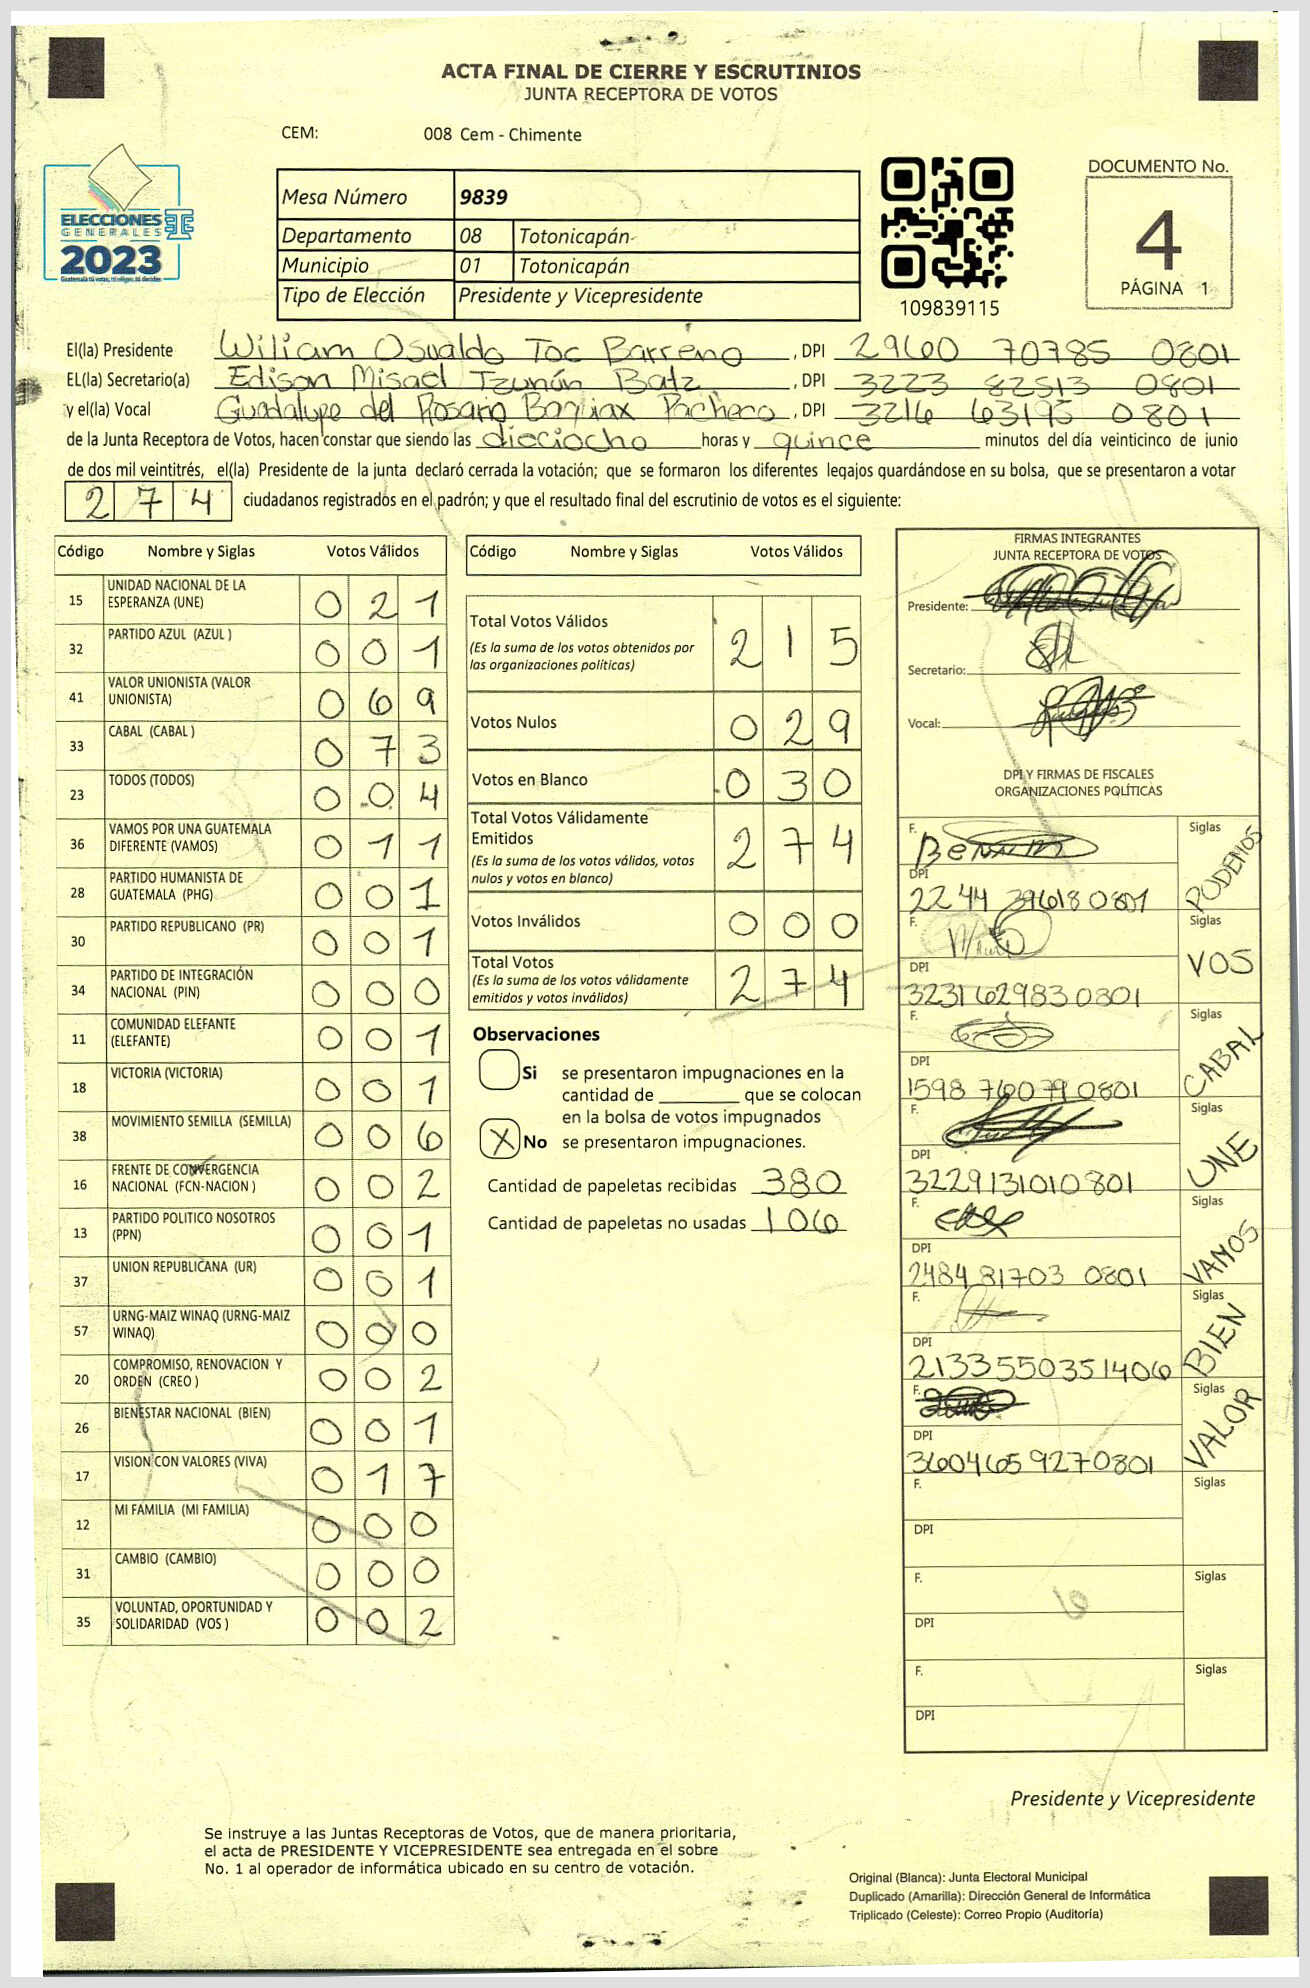 ACTA FINAL DE CIERRE Y ESCRUTINIOS
JUNTA RECEPTORA DE VOTOS
CEM: 008 Cem - Chimente
ELECCIONES
GENERALES
2023
Guatemala tú votas, tú eliges, tú decides
Mesa Número 9839
Departamento 08 Totonicapán
Municipio 01 Totonicapán
Tipo de Elección Presidente y Vicepresidente
109839115
DOCUMENTO No.
4
PÁGINA 1
El(la) Presidente Wiliam Osvaldo Toc Barreno , DPI 2960 70785 0801
EL(la) Secretario(a) Edison Misael Tzunún Batz , DPI 3223 82513 0801
y el(la) Vocal Guadalupe del Rosario Baquiax Pacheco , DPI 3216 63195 0801
de la Junta Receptora de Votos, hacen constar que siendo las dieciocho horas y quince minutos del día veinticinco de junio
de dos mil veintitrés, el(la) Presidente de la junta declaró cerrada la votación; que se formaron los diferentes legajos guardándose en su bolsa, que se presentaron a votar
274 ciudadanos registrados en el padrón; y que el resultado final del escrutinio de votos es el siguiente:
Código Nombre y Siglas Votos Válidos
15 UNIDAD NACIONAL DE LA ESPERANZA (UNE) 0 2 1
32 PARTIDO AZUL (AZUL ) 0 0 1
41 VALOR UNIONISTA (VALOR UNIONISTA) 0 6 9
33 CABAL (CABAL ) 0 7 3
23 TODOS (TODOS) 0 0 4
36 VAMOS POR UNA GUATEMALA DIFERENTE (VAMOS) 0 1 1
28 PARTIDO HUMANISTA DE GUATEMALA (PHG) 0 0 1
30 PARTIDO REPUBLICANO (PR) 0 0 1
34 PARTIDO DE INTEGRACIÓN NACIONAL (PIN) 0 0 0
11 COMUNIDAD ELEFANTE (ELEFANTE) 0 0 1
18 VICTORIA (VICTORIA) 0 0 1
38 MOVIMIENTO SEMILLA (SEMILLA) 0 0 6
16 FRENTE DE CONVERGENCIA NACIONAL (FCN-NACION ) 0 0 2
13 PARTIDO POLITICO NOSOTROS (PPN) 0 0 1
37 UNION REPUBLICANA (UR) 0 0 1
57 URNG-MAIZ WINAQ (URNG-MAIZ WINAQ) 0 0 0
20 COMPROMISO, RENOVACION Y ORDEN (CREO ) 0 0 2
26 BIENESTAR NACIONAL (BIEN) 0 0 1
17 VISION CON VALORES (VIVA) 0 1 7
12 MI FAMILIA (MI FAMILIA) 0 0 0
31 CAMBIO (CAMBIO) 0 0 0
35 VOLUNTAD, OPORTUNIDAD Y SOLIDARIDAD (VOS ) 0 0 2
Código Nombre y Siglas Votos Válidos
Total Votos Válidos 2 1 5
(Es la suma de los votos obtenidos por
las organizaciones políticas)
Votos Nulos 0 2 9
Votos en Blanco 0 3 0
Total Votos Válidamente
Emitidos 2 7 4
(Es la suma de los votos válidos, votos
nulos y votos en blanco)
Votos Inválidos 0 0 0
Total Votos 2 7 4
(Es la suma de los votos válidamente
emitidos y votos inválidos)
Observaciones
Si se presentaron impugnaciones en la
cantidad de ________ que se colocan
en la bolsa de votos impugnados
X No se presentaron impugnaciones.
Cantidad de papeletas recibidas 380
Cantidad de papeletas no usadas 106
FIRMAS INTEGRANTES
JUNTA RECEPTORA DE VOTOS
Presidente:
Secretario:
Vocal:
DPI Y FIRMAS DE FISCALES
ORGANIZACIONES POLÍTICAS
F. Siglas PODEMOS
DPI 2244 39618 0801
F. Siglas VOS
DPI 3231629830801
F. Siglas CABAL
DPI 1598 76079 0801
F. Siglas UNE
DPI 3229131010801
F. Siglas VAMOS
DPI 2484 81703 0801
F. Siglas BIEN
DPI 2133550351406
F. Siglas VALOR
DPI 3604659270801
F. Siglas
DPI
F. Siglas
DPI
F. Siglas
DPI
Presidente y Vicepresidente
Se instruye a las Juntas Receptoras de Votos, que de manera prioritaria,
el acta de PRESIDENTE Y VICEPRESIDENTE sea entregada en el sobre
No. 1 al operador de informática ubicado en su centro de votación.
Original (Blanca): Junta Electoral Municipal
Duplicado (Amarilla): Dirección General de Informática
Triplicado (Celeste): Correo Propio (Auditoría)